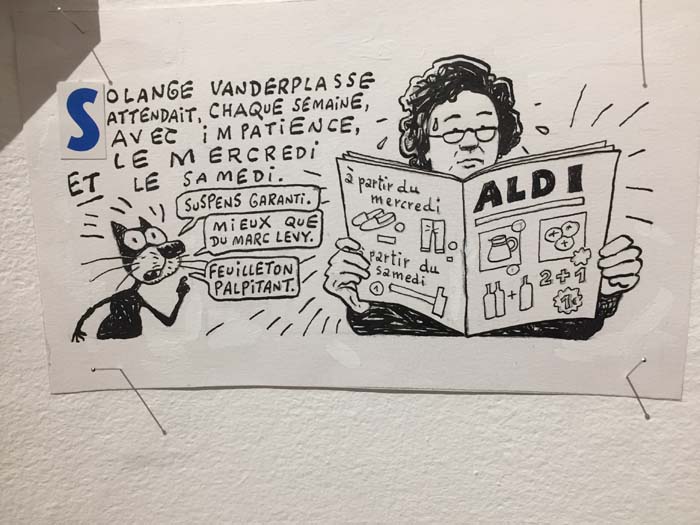 SOLANGE VANDERPLASSE
ATTENDAIT, CHAQUE SEMAINE,
AVEC IMPATIENCE,
LE MERCREDI
ET LE SAMEDI.
SUSPENS GARANTI.
MIEUX QUE
DU MARC LEVY.
FEUILLETON
PALPITANT.
à partir du
mercredi
partir du
samedi
1
ALDI
2+1
1€